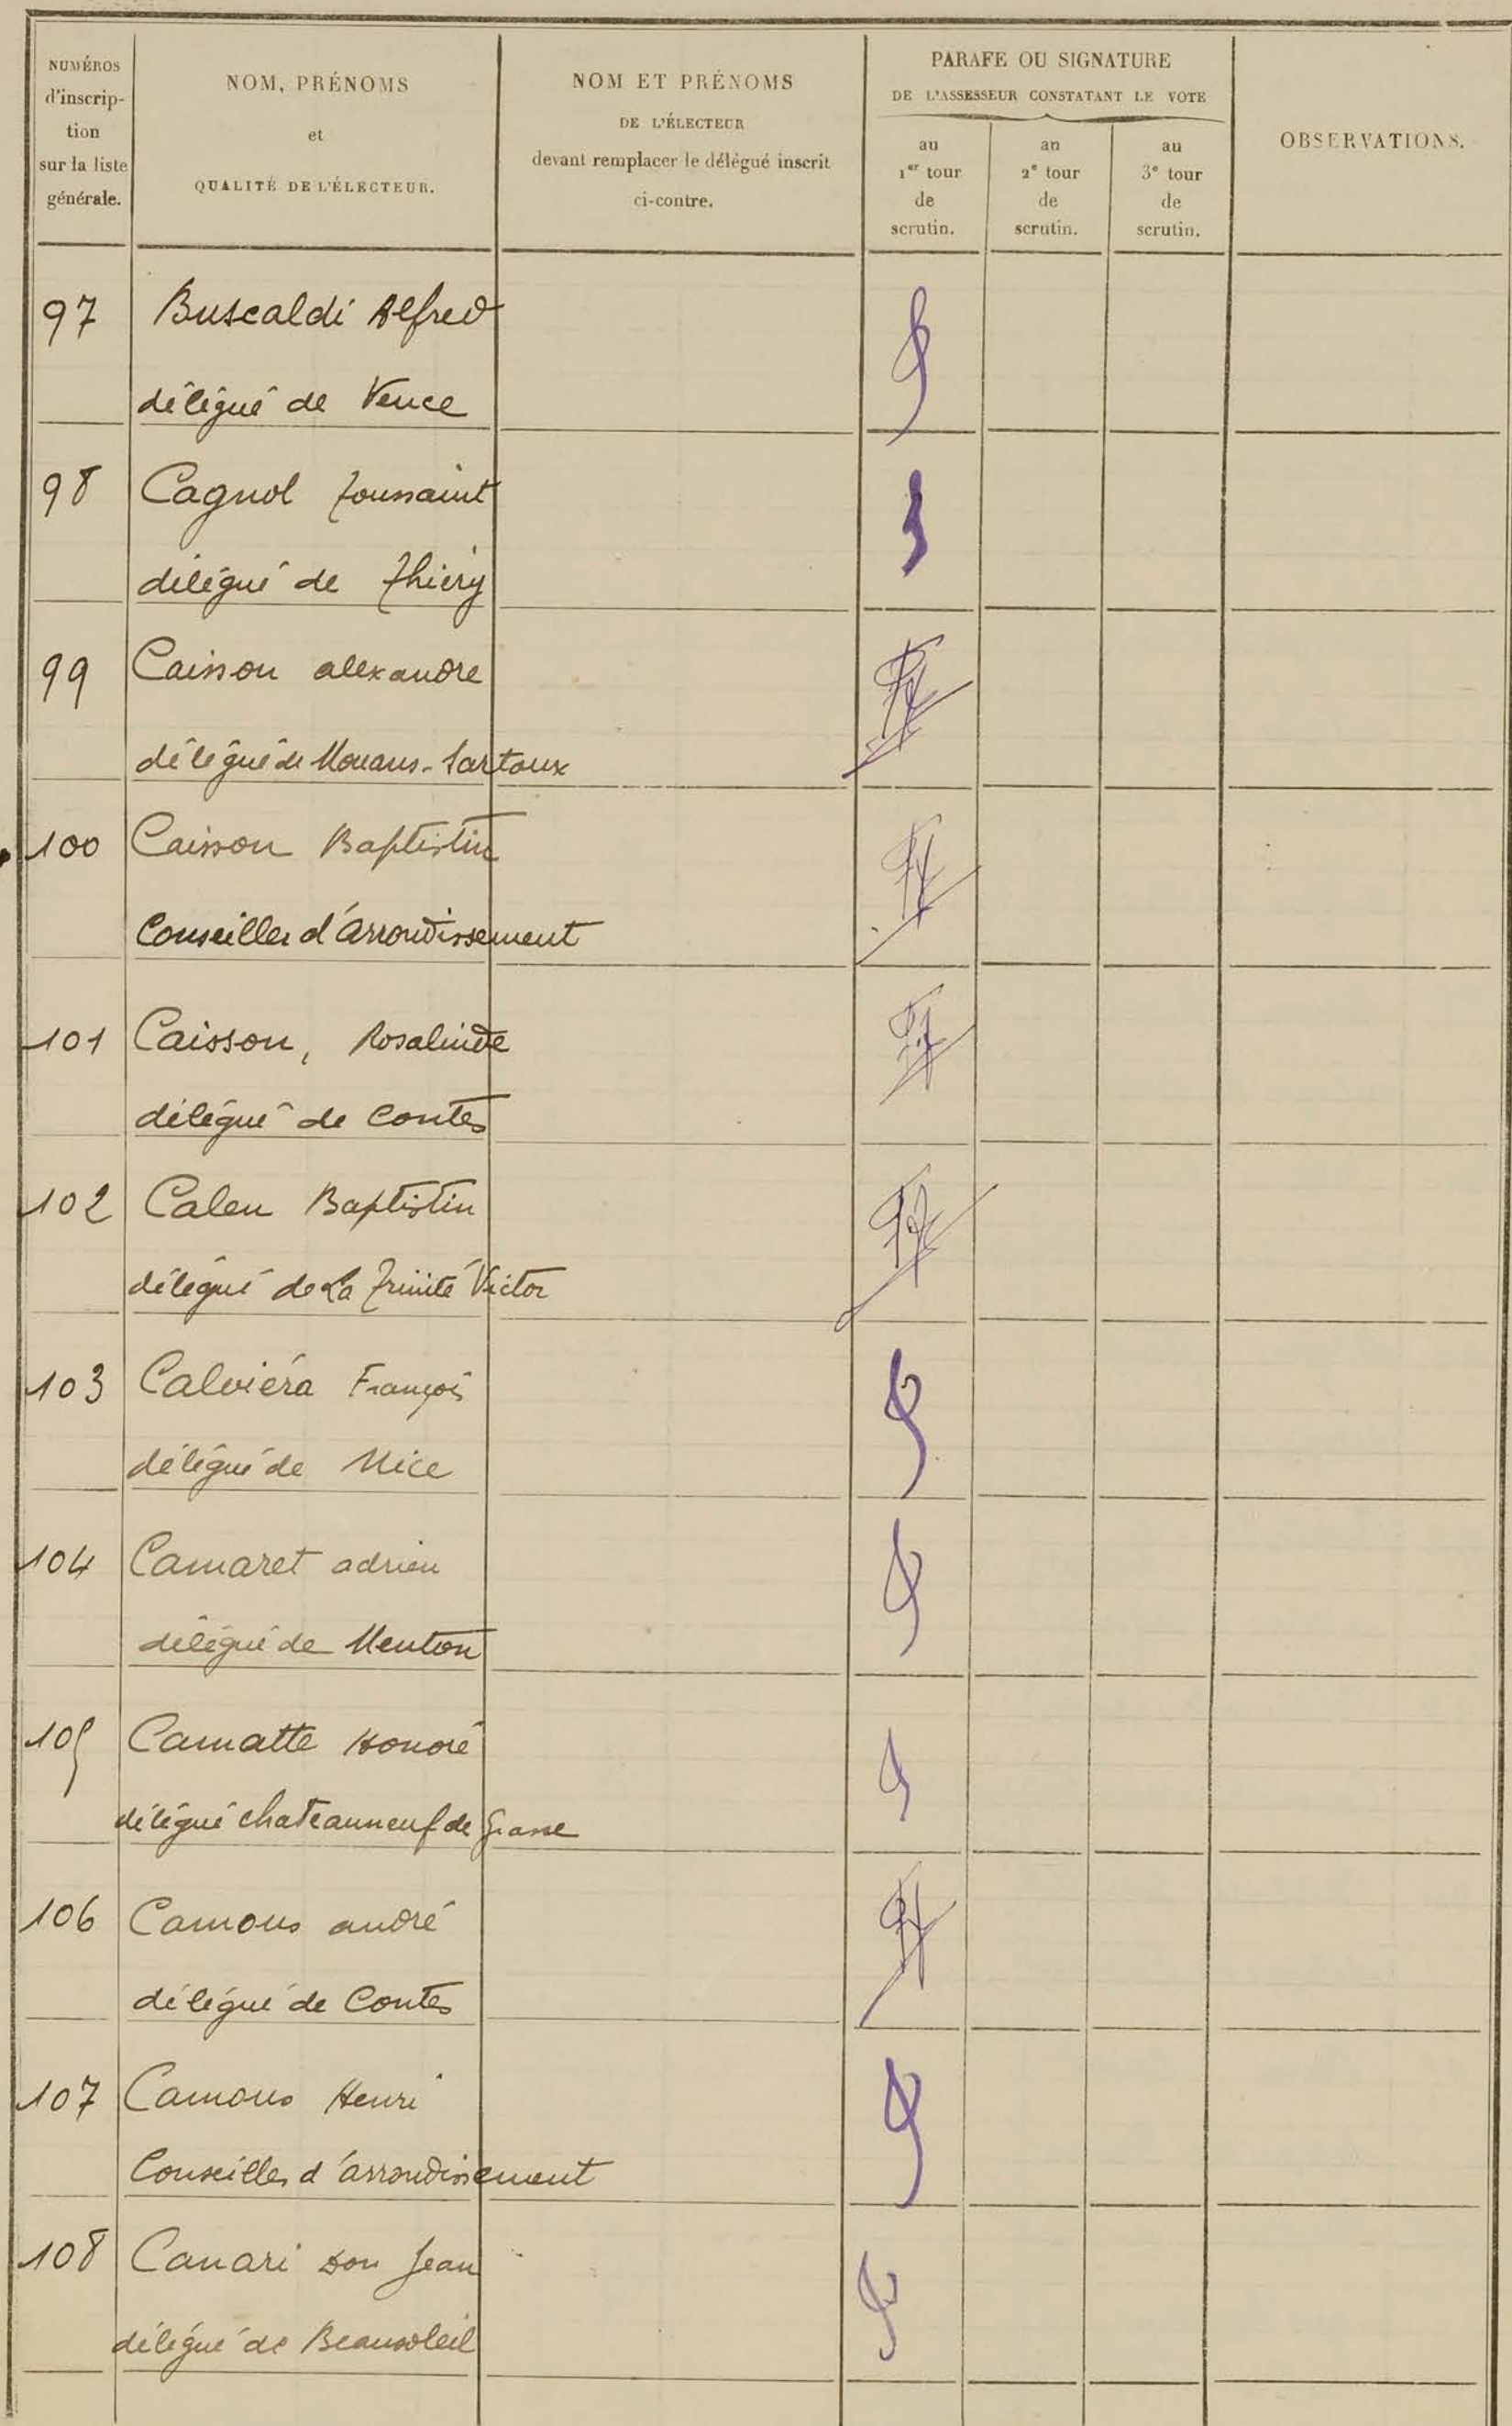 NUMÉROS
d'inscrip-
tion
sur la liste
générale.
NOM, PRÉNOMS
et
QUALITÉ DE L'ÉLECTEUR.
NOM ET PRÉNOMS
DE L'ÉLECTEUR
devant remplacer le délégué inscrit
ci-contre.
PARAFE OU SIGNATURE
DE L'ASSESSEUR CONSTATANT LE VOTE
au
1er tour
de
scrutin.
au
2e tour
de
scrutin.
au
3e tour
de
scrutin.
OBSERVATIONS.
97 Buscaldi Alfred
délégué de Vence
98 Cagnol Toussaint
délégué de Thiéry
99 Caisson alexandre
délégué de Mouans-Sartoux
100 Caisson Baptistin
Conseiller d'Arrondissement
101 Caisson, Rosalinde
délégué de Contes
102 Calen Baptistin
délégué de La Trinité Victor
103 Calviéra François
délégué de Nice
104 Camaret adrien
délégué de Menton
105 Camatte Honoré
délégué chateauneuf de Grasse
106 Camous andré
délégué de Contes
107 Camous Henri
Conseiller d'arrondissement
108 Canari Don Jean
délégué de Beausoleil